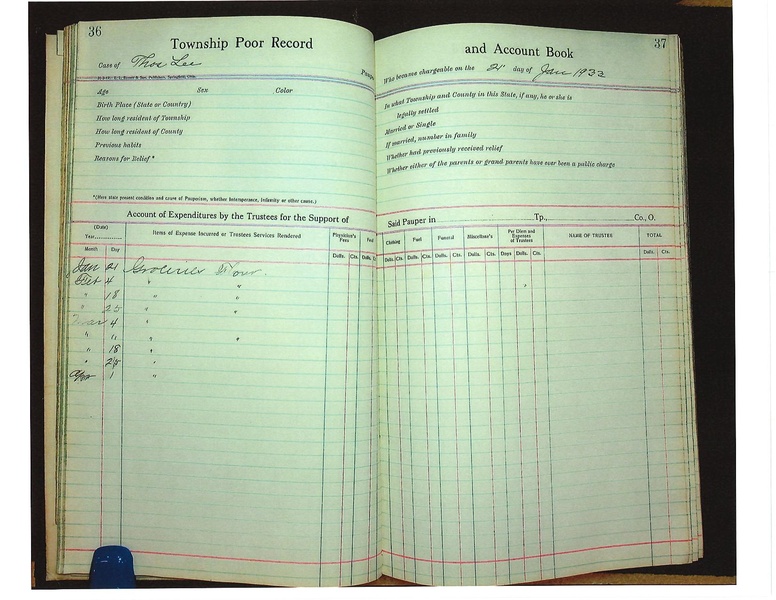 36
Township Poor Record
Case of Thos Lee
Age Sex Color
Birth Place (State or Country)
How long resident of Township
How long resident of County
Previous habits
Reasons for Relief*
*(Here state present condition and cause of Pauperism, whether Intemperance, Infirmity or other cause.)
Account of Expenditures by the Trustees for the Support of
(Date)
Year
Items of Expense Incurred or Trustees Services Rendered
Physician's Fees
Food
Month Day
Dolls. Cts. Dolls.
Jan 21 Groceries
Feb 4 " "
" 18 " "
" 25 " "
Mar 4 "
" " " "
" 18 "
" 25 "
Apr 1 "
37
and Account Book
Who became chargeable on the 21 day of Jan 1933
In what Township and County in this State, if any, he or she is
legally settled
Married or Single
If married, number in family
Whether had previously received relief
Whether either of the parents or grand parents have ever been a public charge
Said Pauper in Tp., Co., O.
Clothing Fuel Funeral Miscellane's Per Diem and Expenses of Trustees NAME OF TRUSTEE TOTAL
Dolls. Cts. Dolls. Cts. Dolls. Cts. Dolls. Cts. Days Dolls. Cts. Dolls. Cts.